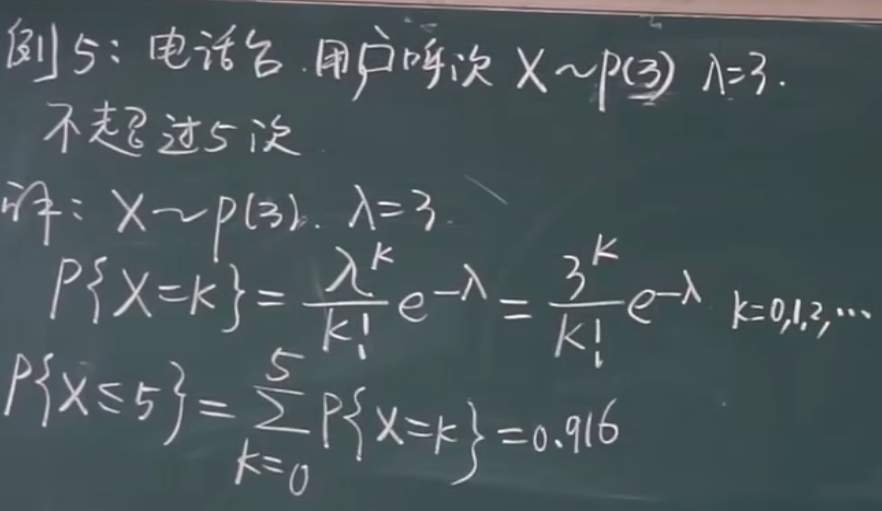 例5: 电话台.用户呼次 X~p(3) λ=3.
不超过5次
解: X~p(3). λ=3.
P{X=k}=λ^k/k! e^-λ = 3^k/k! e^-λ k=0,1,2,…
P{X≤5}=∑_{k=0}^{5} P{X=k}=0.916